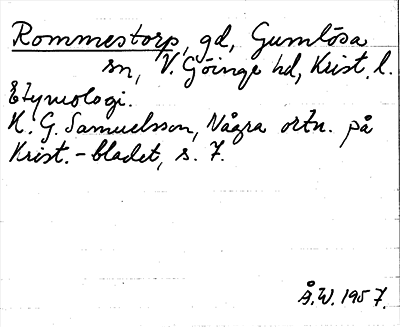 Rommestorp, gd, Gumlösa
sn, V. Göinge hd, Krist. l.
Etymologi.
K. G. Samuelsson, Några ortn. på
Krist.-bladet, s. 7.
Å.W. 1957.